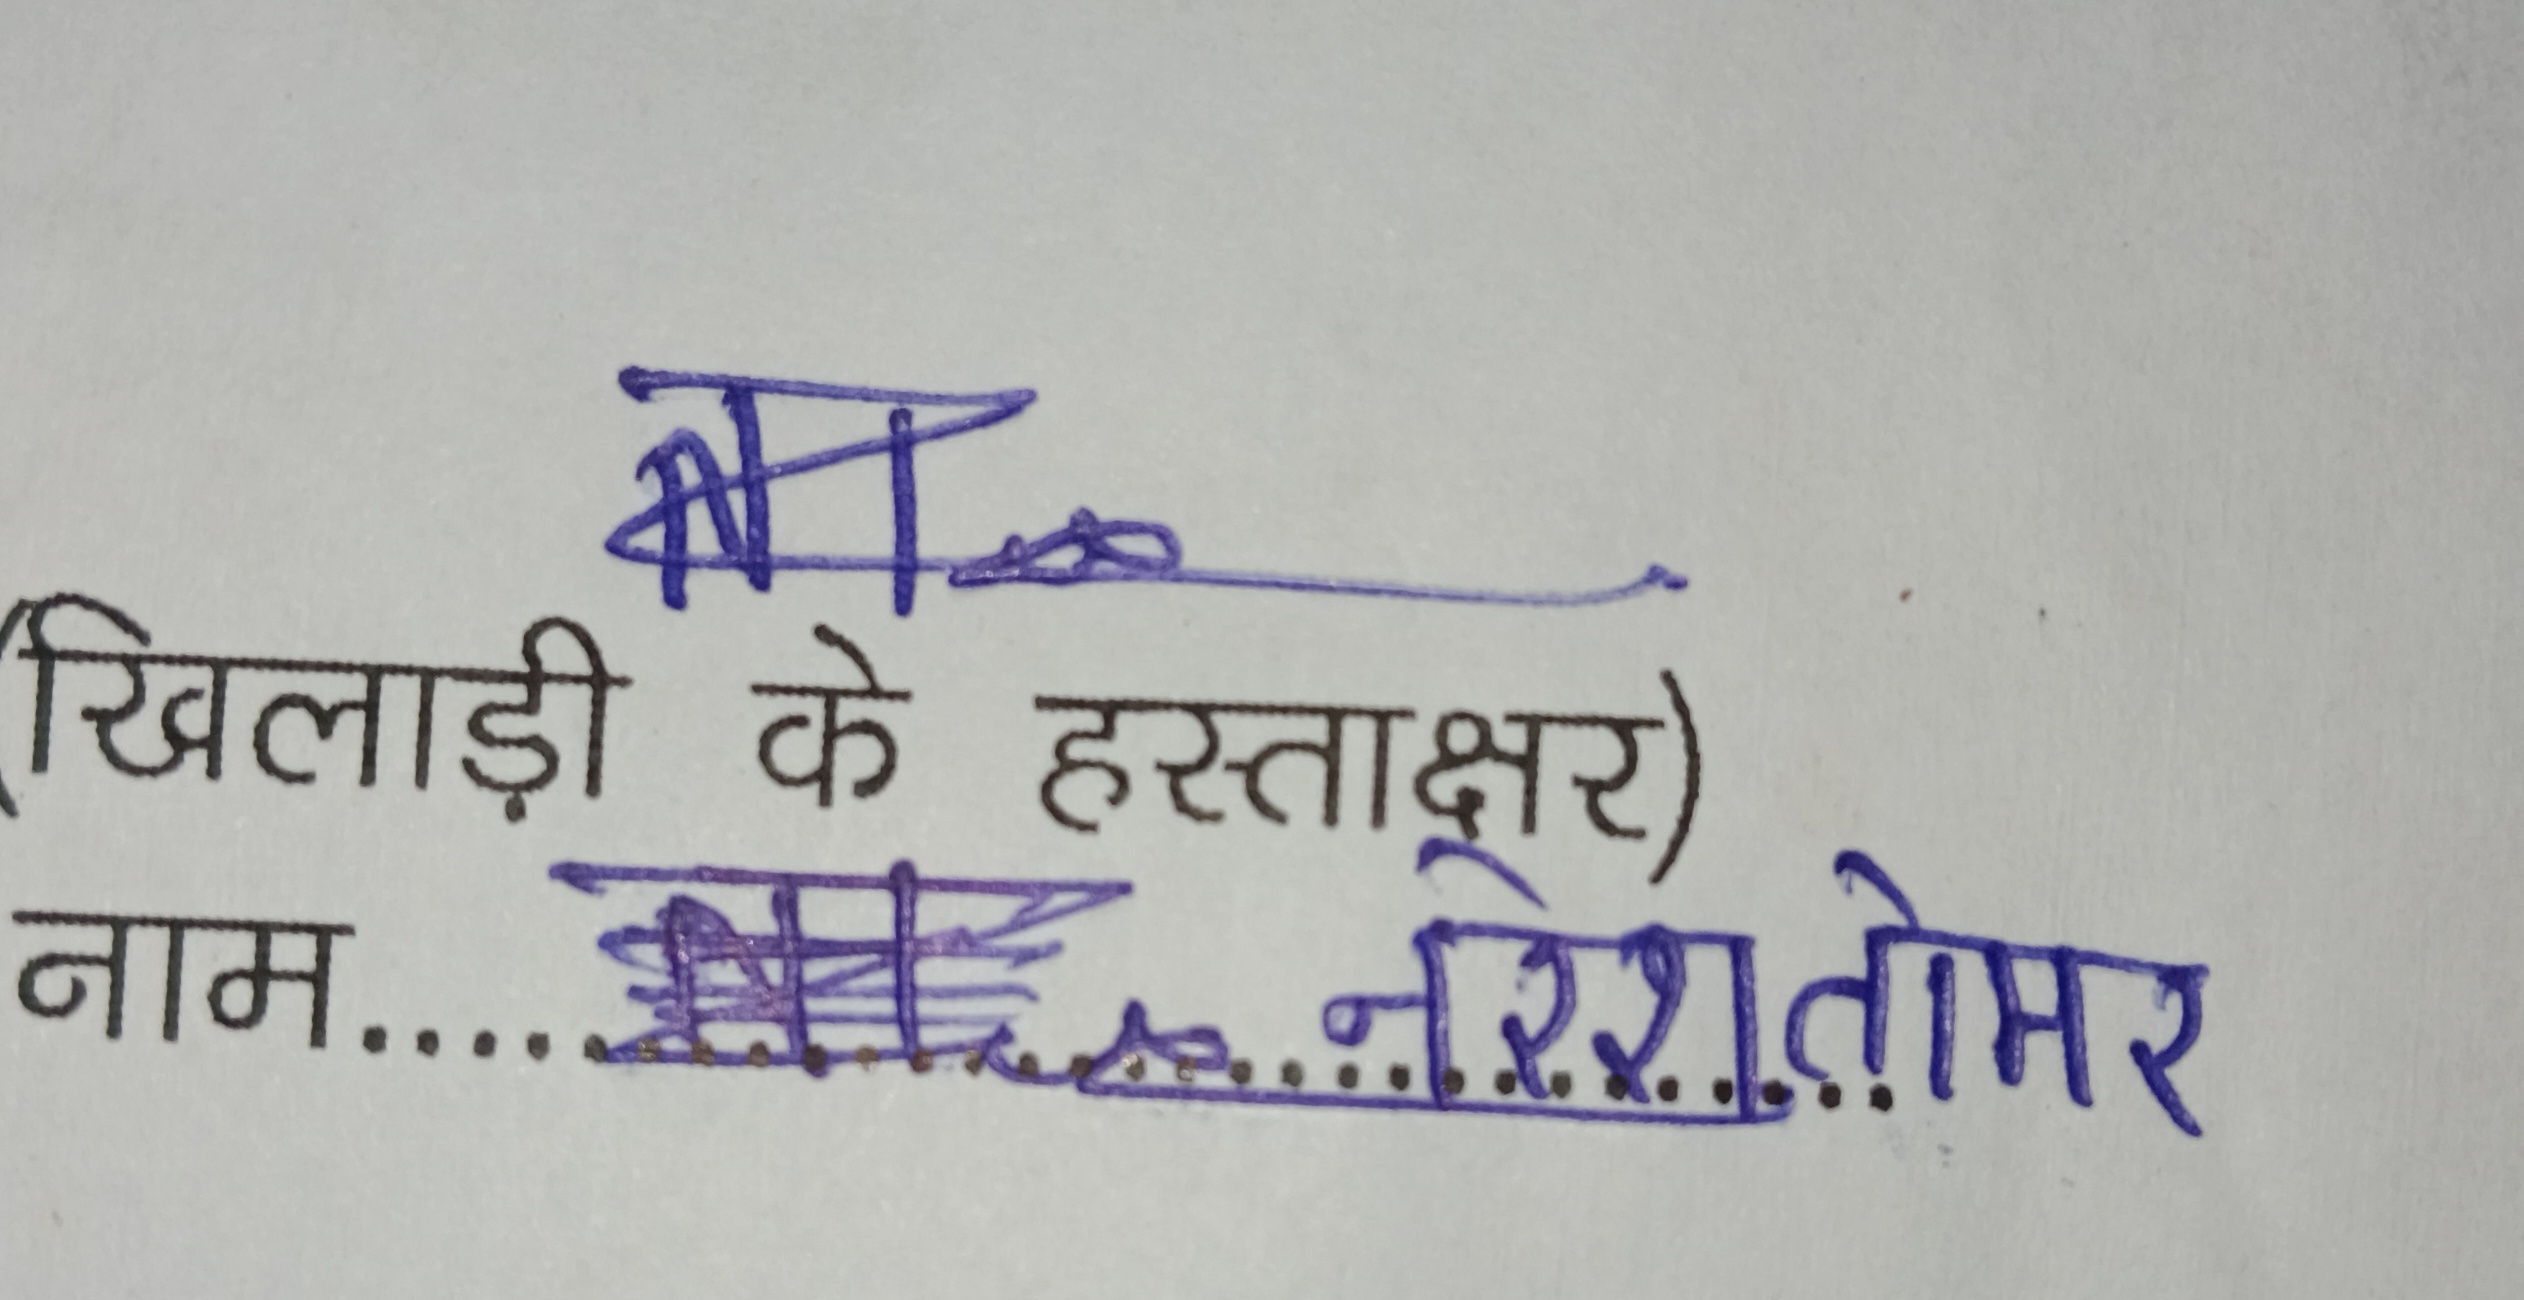 (खिलाड़ी के हस्ताक्षर)
नाम..... नरेश तोमर